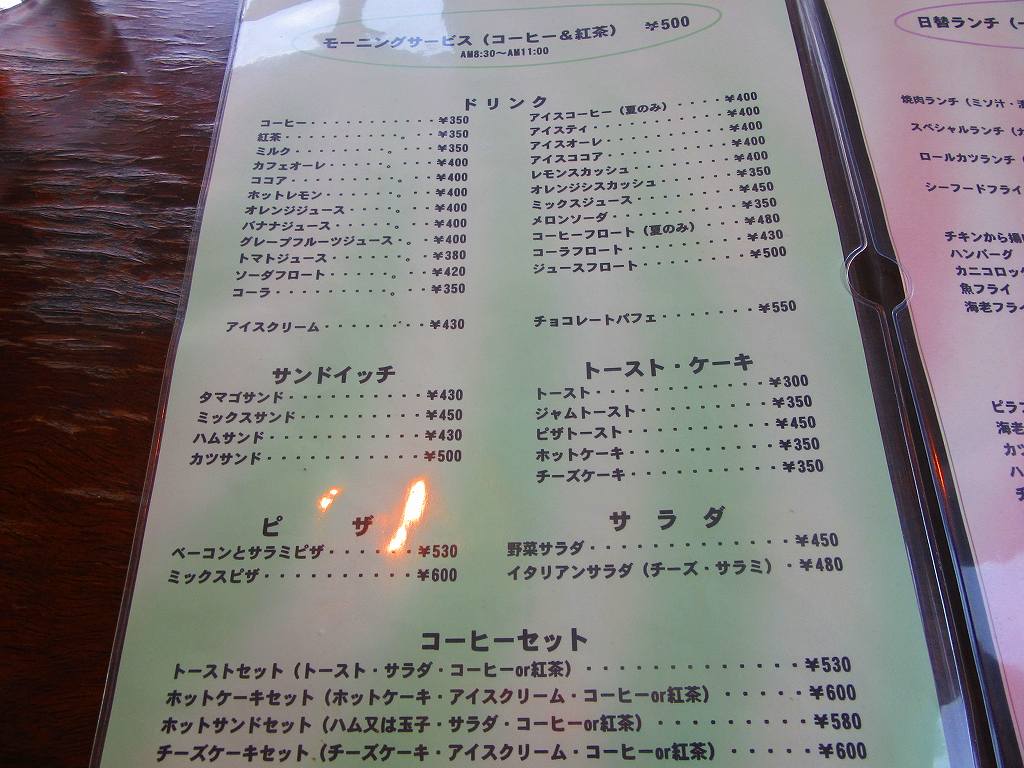 モーニングサービス（コーヒー＆紅茶） ¥500
AM8:30～AM11:00
ドリンク
コーヒー・・・・・・・・・・¥350
紅茶・・・・・・・・・。・・¥350
ミルク・・・・・・・・。・・¥350
カフェオーレ・・・・・。・・¥400
ココア・・・・・・・・。・・¥400
ホットレモン・・・・・。・・¥400
オレンジジュース・・・。・・¥400
バナナジュース・・・・。・・¥400
グレープフルーツジュース・。・・¥400
トマトジュース・・・・。・・¥380
ソーダフロート・・・・。・・¥420
コーラ・・・・・・・・。・・¥350
アイスクリーム・・・・・・・・¥430
アイスコーヒー（夏のみ）・・・・¥400
アイスティ・・・・・・・・・・¥400
アイスオーレ・・・・・・・・・¥400
アイスココア・・・・・・・・・¥400
レモンスカッシュ・・・・・・・¥400
オレンジシスカッシュ・・・・・¥350
ミックスジュース・・・・・・・¥450
メロンソーダ・・・・・・・・・¥350
コーヒーフロート（夏のみ）・・・¥480
コーラフロート・・・・・・・・¥430
ジュースフロート・・・・・・・¥500
チョコレートパフェ・・・・・・・¥550
サンドイッチ
タマゴサンド・・・・・・・・・・¥430
ミックスサンド・・・・・・・・・¥450
ハムサンド・・・・・・・・・・・¥430
カツサンド・・・・・・・・・・・¥500
トースト・ケーキ
トースト・・・・・・・・・・・¥300
ジャムトースト・・・・・・・・¥350
ピザトースト・・・・・・・・・¥450
ホットケーキ・・・・・・・・・¥350
チーズケーキ・・・・・・・・・¥350
ピ ザ
ベーコンとサラミピザ・・・・・・¥530
ミックスピザ・・・・・・・・・・¥600
サ ラ ダ
野菜サラダ・・・・・・・・・・・・¥450
イタリアンサラダ（チーズ・サラミ）・¥480
コーヒーセット
トーストセット（トースト・サラダ・コーヒーor紅茶）・・・・・・・・・・・¥530
ホットケーキセット（ホットケーキ・アイスクリーム・コーヒーor紅茶）・・・・・¥600
ホットサンドセット（ハム又は玉子・サラダ・コーヒーor紅茶）・・・・・・・・¥580
チーズケーキセット（チーズケーキ・アイスクリーム・コーヒーor紅茶）・・・・・¥600
日替ランチ（
焼肉ランチ（ミソ汁・
スペシャルランチ（
ロールカツランチ（
シーフードフライ
チキンから揚
ハンバーグ
カニコロッ
魚フライ
海老フラ
ピラ
海老
カ
ハ